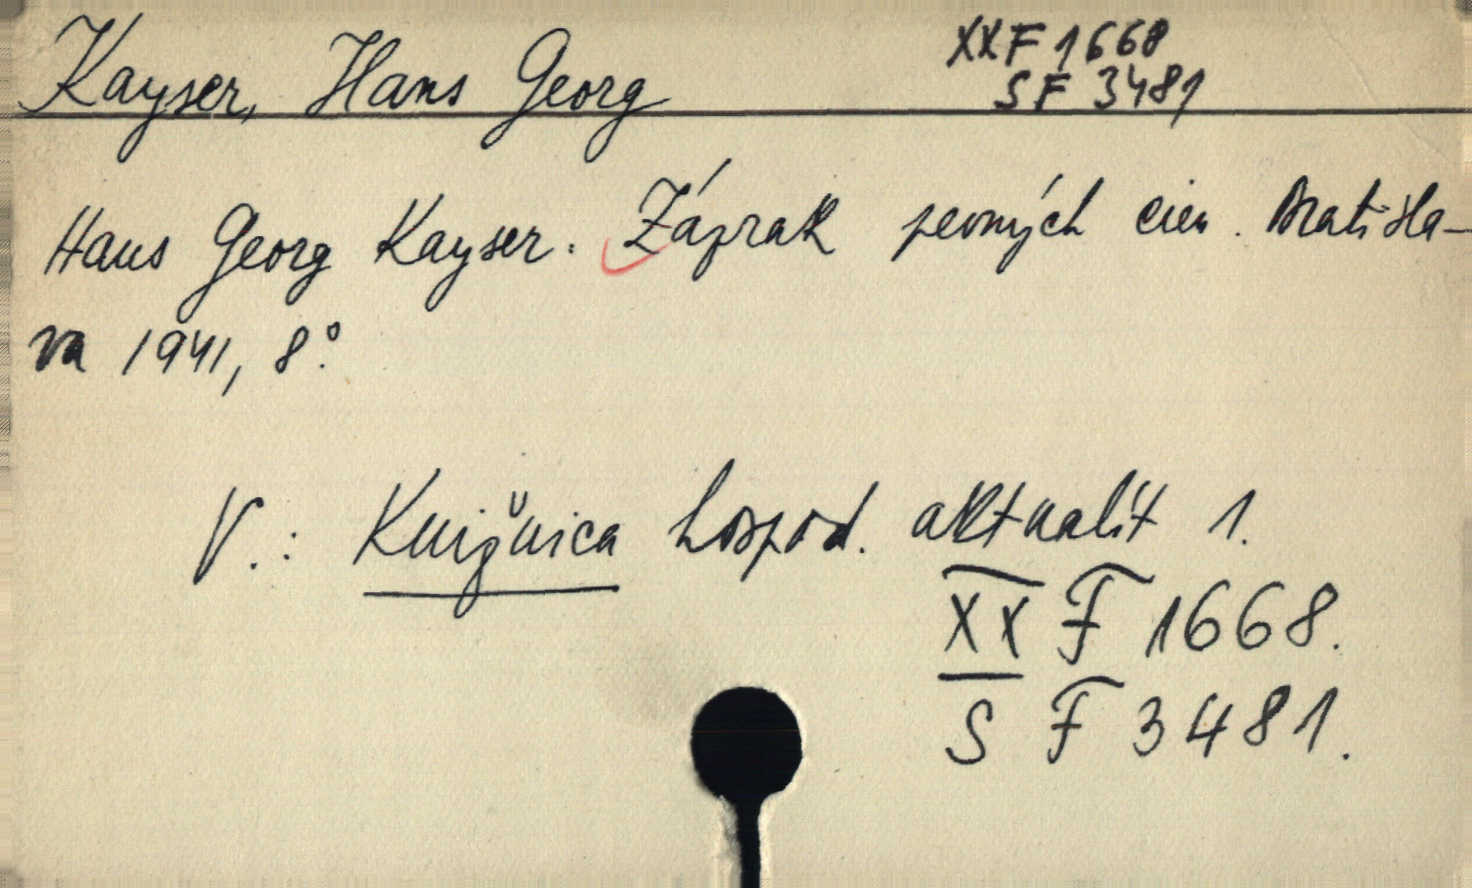 Kayser, Hans Georg
XX F 1668
SF 3481
Hans Georg Kayser: Záprak pevných cien. Bratisla-
va 1941, 8°.
V.: Knižnica hospod. aktualít 1.
XX F 1668.
S F 3481.